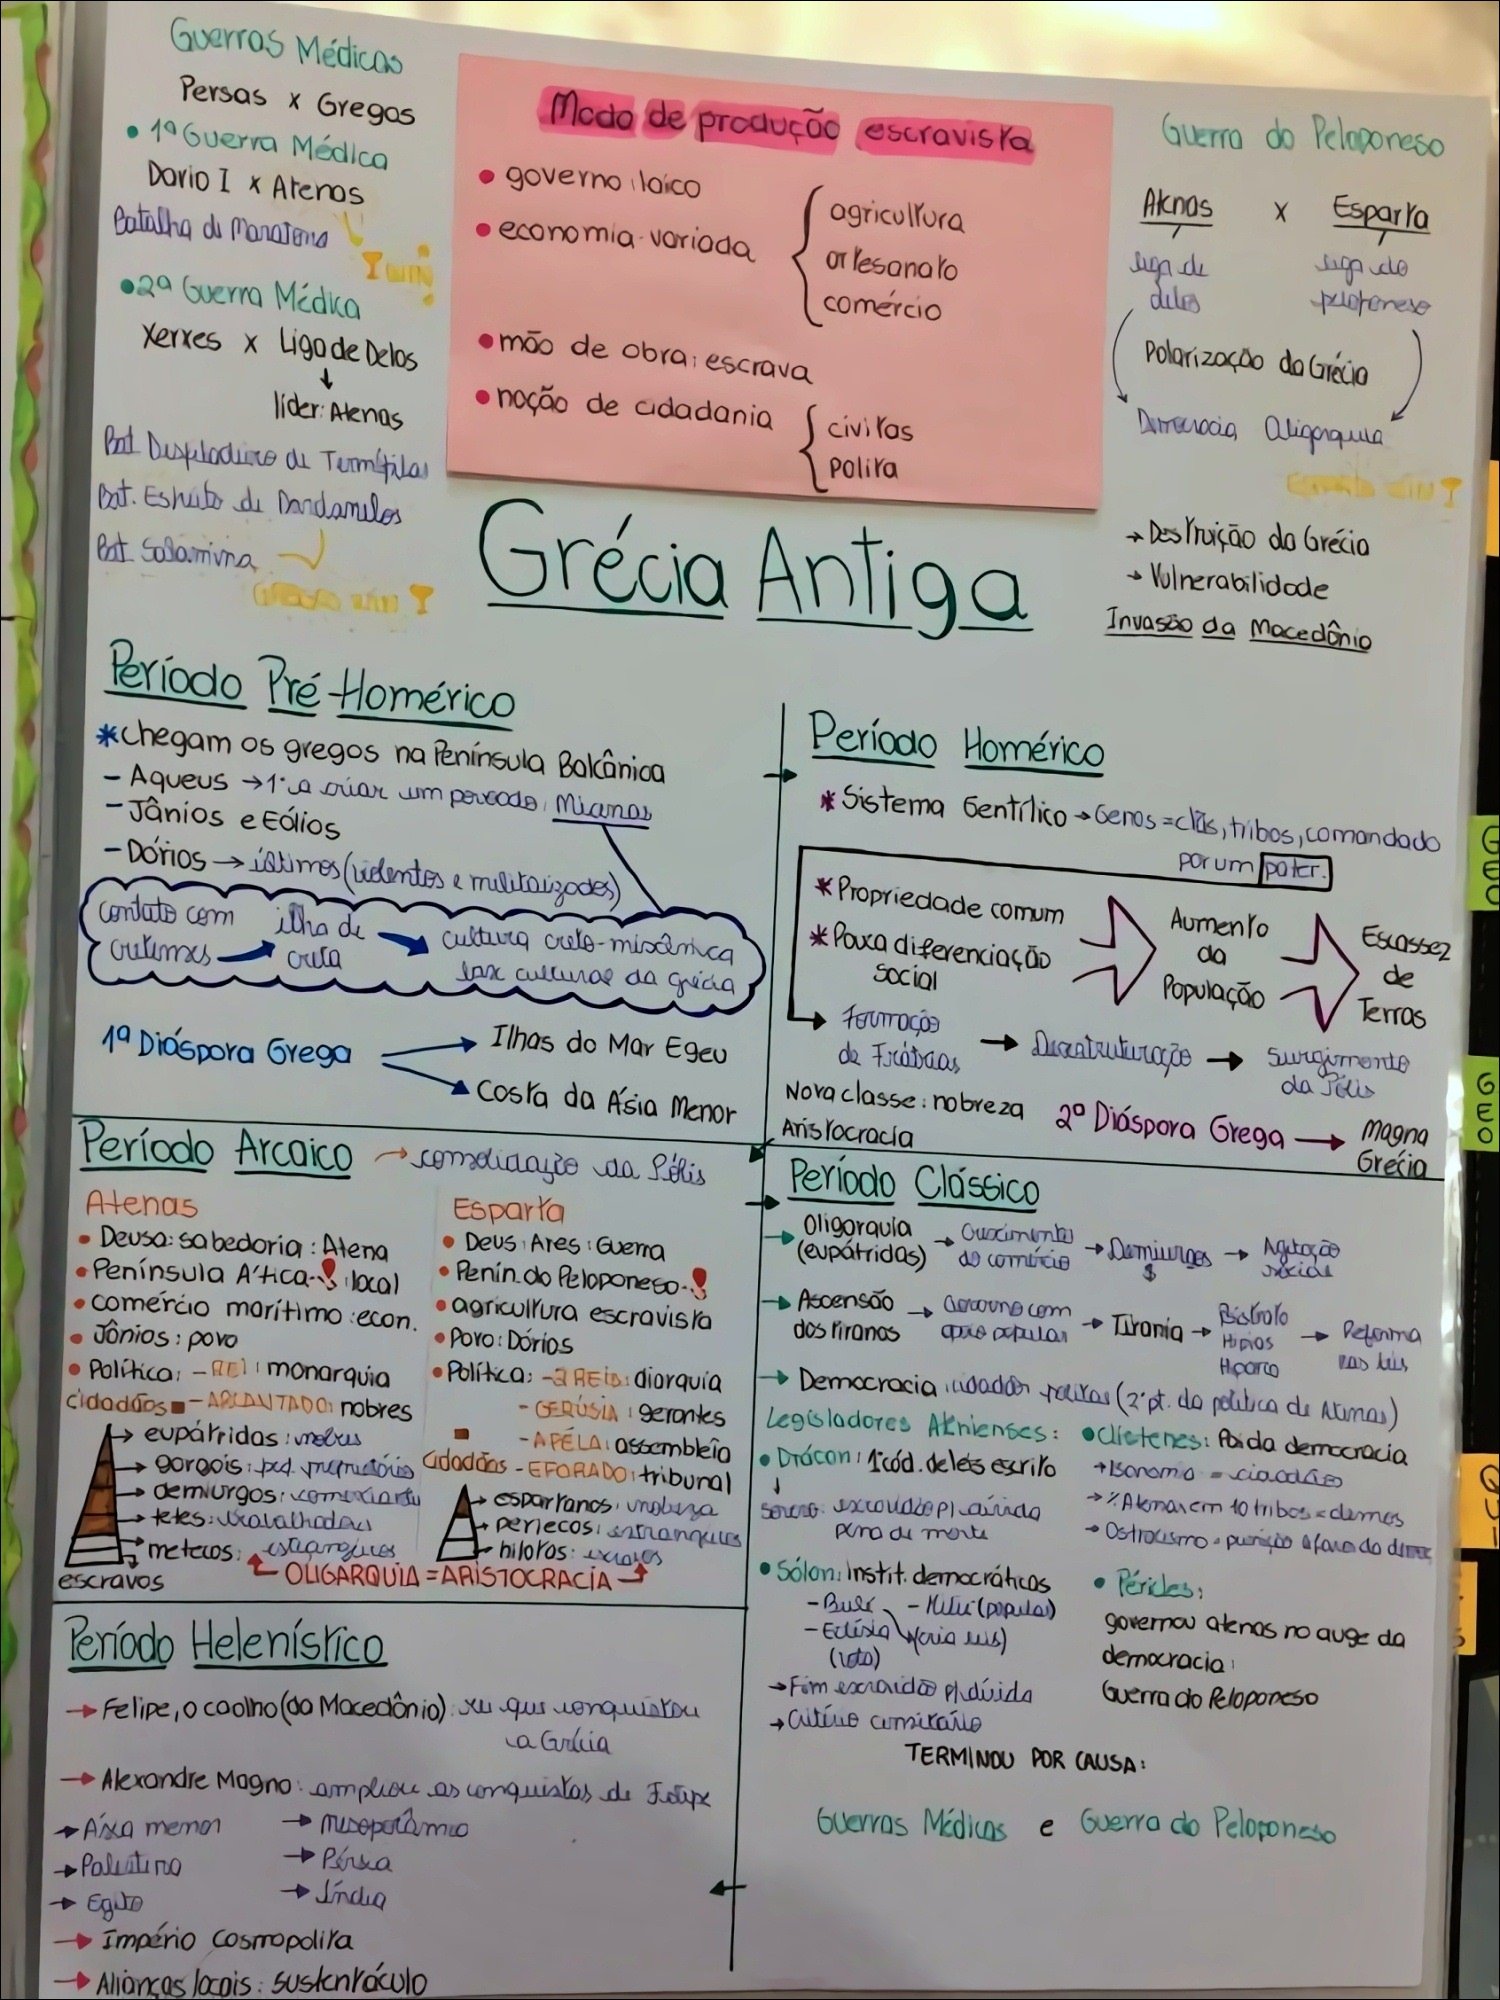 Guerras Médicas
Persas x Gregos
• 1ª Guerra Médica
Dario I x Atenas
Batalha de Maratona
win
• 2ª Guerra Médica
Xerxes x Liga de Delos
↓
líder: Atenas
Bat. Desfiladeiro de Termópilas
Bat. Estreito de Dardanelos
Bat. Salamina
win
Modo de produção escravista
• governo: laico
• economia variada { agricultura
artesanato
comércio
• mão de obra: escrava
• noção de cidadania { civitas
polita
Guerra do Peloponeso
Atenas x Esparta
liga de delos
liga do peloponeso
Polarização da Grécia
Democracia Oligarquia
win
→ Destruição da Grécia
→ Vulnerabilidade
Invasão da Macedônio
Grécia Antiga
Período Pré-Homérico
* chegam os gregos na Península Balcânica
- Aqueus → 1º a criar um povoado: Micenas
- Jânios e Eólios
- Dórios → últimos (violentos e militarizados)
contato com cretenses → ilha de creta → cultura creto-micênica
base cultural da grécia
1ª Diáspora Grega → Ilhas do Mar Egeu
→ Costa da Ásia Menor
Período Homérico
* Sistema Gentílico → Genos = clãs, tribos, comandado
por um pater.
* Propriedade comum
* Pouca diferenciação social
Aumento da População
Escassez de Terras
→ Formação de Frátrias → Desestruturação → Surgimento da Pólis
Nova classe: nobreza
Aristocracia
2ª Diáspora Grega → Magna Grécia
Período Arcaico → consolidação da Pólis
Atenas
• Deusa: sabedoria: Atena
• Península Ática: local
• comércio marítimo: econ.
• Jônios: povo
• Política: - REI: monarquia
cidadãos - ARCONTADO: nobres
→ eupátridas: nobres
→ gorgois: peq. proprietários
→ demiurgos: comerciantes
→ tetes: trabalhadores
→ metecos: estrangeiros
escravos
Esparta
• Deus: Ares: Guerra
• Penín. do Peloponeso
• agricultura escravista
• Povo: Dórios
• Política: - 2 REIS: diarquia
- GERÚSIA: gerontes
- APÉLA: assembleia
cidadãos - EFORADO: tribunal
→ espartanos: nobreza
→ periecos: estrangeiros
→ hilotas: escravos
OLIGARQUIA = ARISTOCRACIA
Período Clássico
→ Oligarquia (eupátridas) → Crescimento do comércio → Demiurgos $ → Agitação social
→ Ascensão dos tiranos → Governo com apoio popular → Tirania → Psístrato
Hípias
Hiparco → Reforma nas leis
→ Democracia: cidadão politas (2ª pt. da política de Atenas)
Legisladores Atenienses:
• Drácon: 1º cód. de leis escrito
↓
severo: escravidão p/ dívida
pena de morte
• Sólon: Instit. democráticas
- Bulé - Heliu (popular)
- Eclésia (cria leis)
(voto)
→ Fim escravidão p/ dívida
→ Critério censitário
• Clístenes: Pai da democracia
→ Isonomia = cidadãos
→ % Atenas em 10 tribos = demos
→ Ostracismo = punição a favor da democ
• Péricles:
governou atenas no auge da
democracia:
Guerra do Peloponeso
TERMINOU POR CAUSA:
Guerras Médicas e Guerra do Peloponeso
Período Helenístico
→ Felipe, o caolho (da Macedônio): rei que conquistou
a Grécia
→ Alexandre Magno: ampliou as conquistas de Felipe
→ Aísa menor → Mesopotâmia
→ Palestina → Pérsia
→ Egito → Índia
→ Império Cosmopolita
→ Alianças locais: sustentáculo
GEO
GEO
QUI